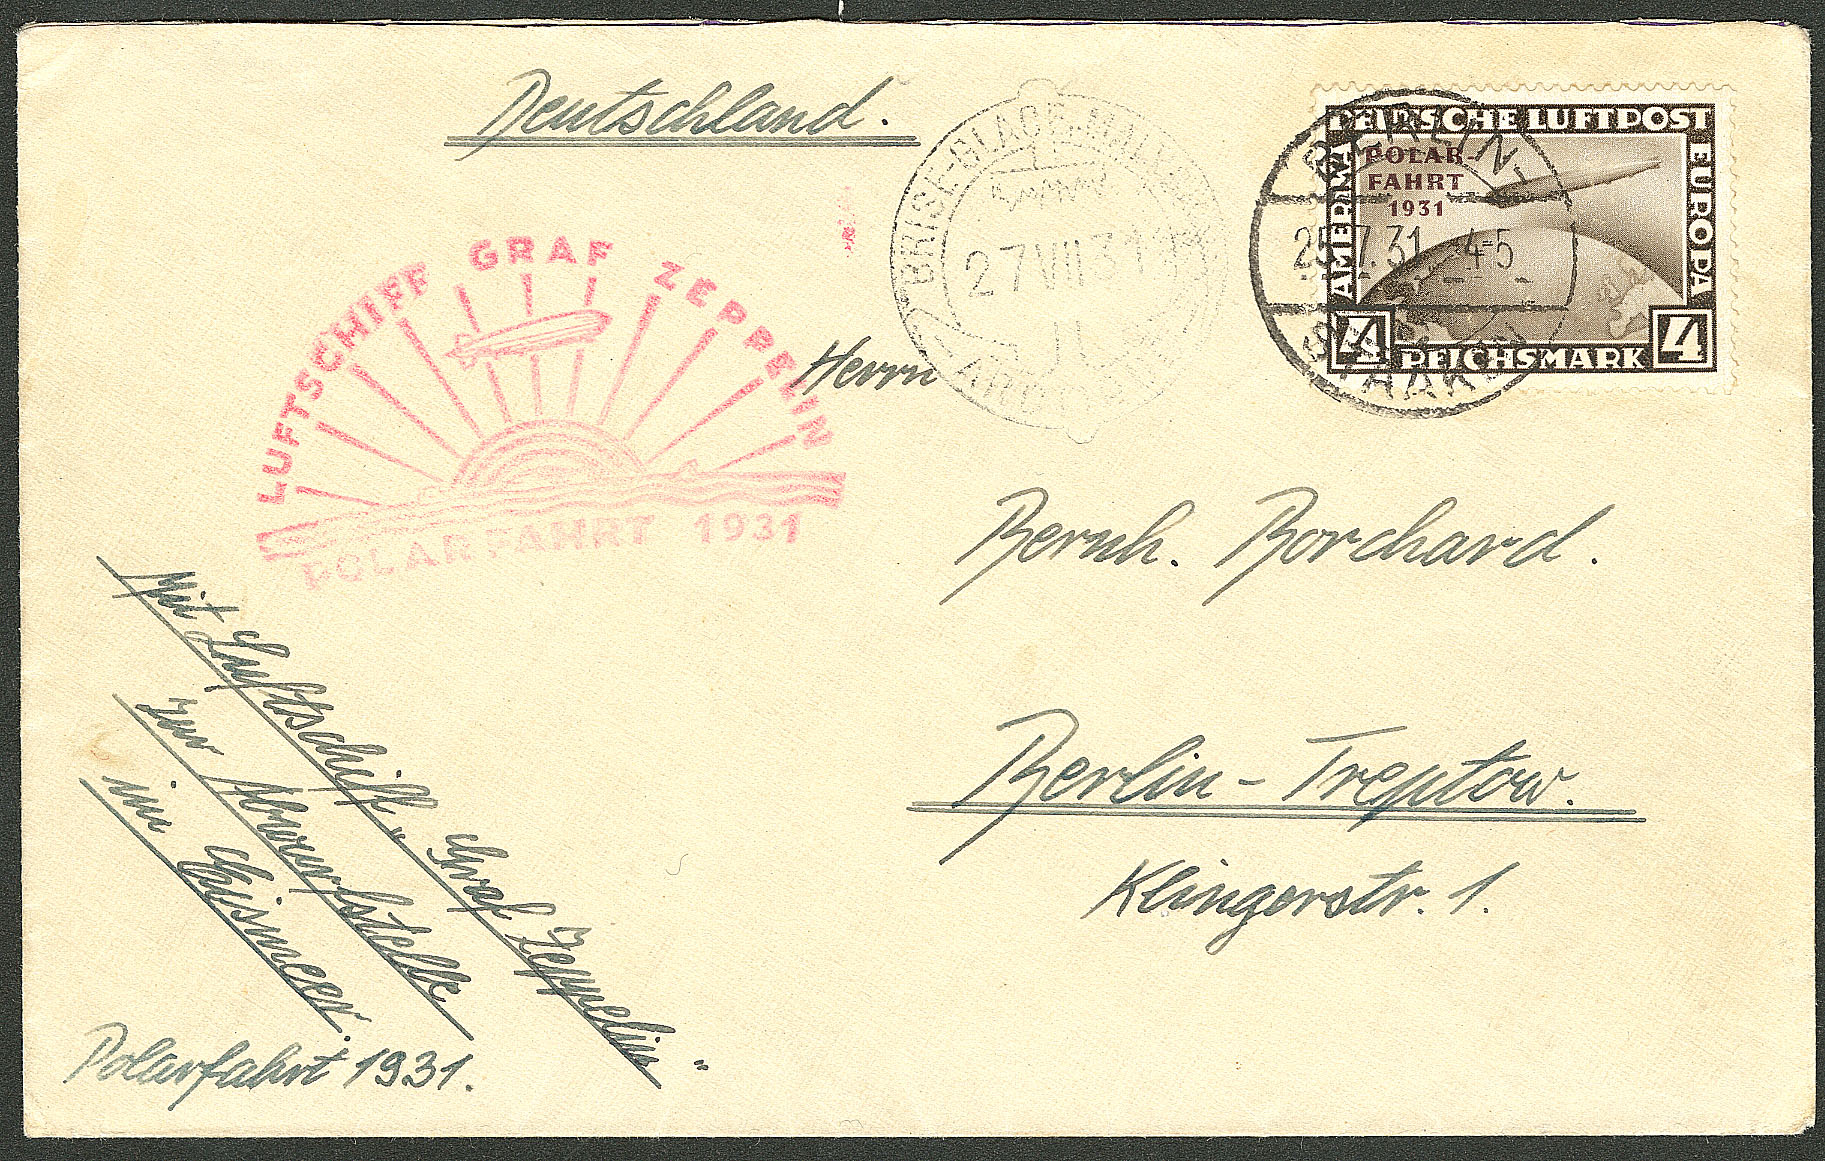 Deutschland.
LUFTSCHIFF GRAF ZEPPELIN
POLARFAHRT 1931
BRISE-GLACE
27 VII 31
DEUTSCHE LUFTPOST
AMERIKA
EUROPA
POLAR-
FAHRT
1931
4 REICHSMARK 4
BERLIN-
25.7.31 4-5
STAAKEN
Herrn
Bernh. Borchard.
Berlin-Treptow.
Klingerstr. 1.
Mit Luftschiff „Graf Zeppelin"
zur Abwurfstelle
im Eismeer.
Polarfahrt 1931.